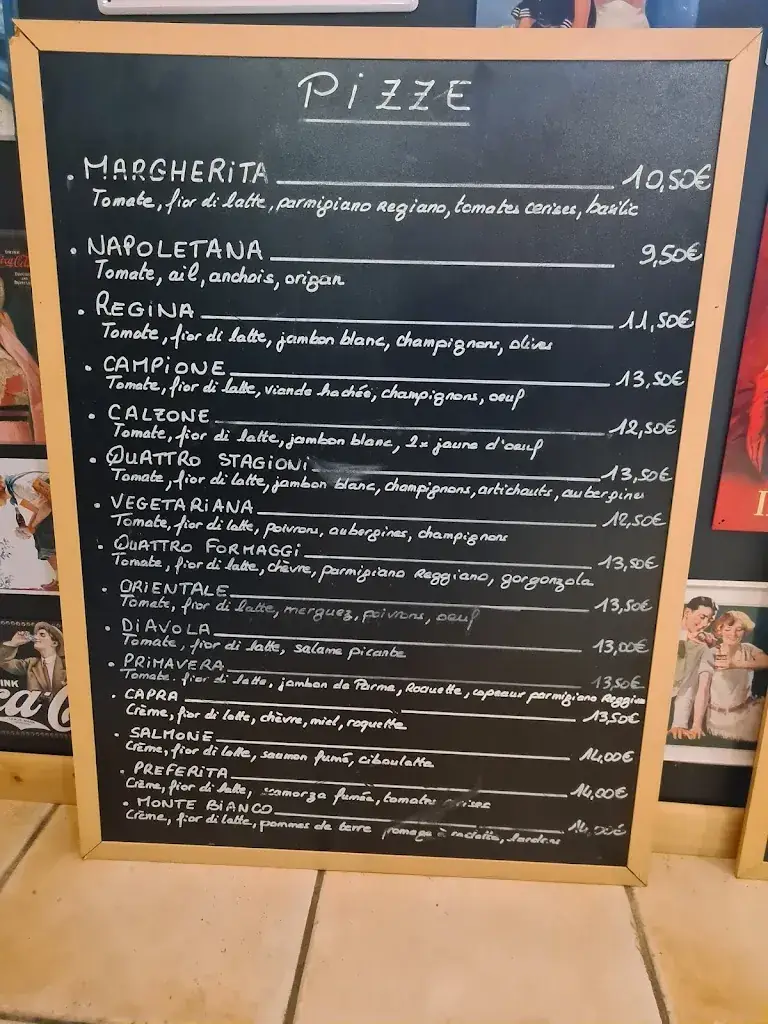 PIZZE
. MARGHERITA 10,50€
Tomate, fior di latte, parmigiano Regiano, tomates cerises, basilic
. NAPOLETANA 9,50€
Tomate, ail, anchois, origan
. REGINA 11,50€
Tomate, fior di latte, jambon blanc, champignons, olives
. CAMPIONE 13,50€
Tomate, fior di latte, viande hachée, champignons, oeuf
. CALZONE 12,50€
Tomate, fior di latte, jambon blanc, 2x jaune d'oeuf
. QUATTRO STAGIONI 13,50€
Tomate, fior di latte, jambon blanc, champignons, artichauts, aubergines
. VEGETARIANA 12,50€
Tomate, fior di latte, poivrons, aubergines, champignons
. QUATTRO FORMAGGI 13,50€
Tomate, fior di latte, chèvre, parmigiano Reggiano, gorgonzola
. ORIENTALE 13,50€
Tomate, fior di latte, merguez, poivrons, oeuf
. DIAVOLA 13,00€
Tomate, fior di latte, salame picante
. PRIMAVERA 13,50€
Tomate, fior di latte, jambon de Parme, Roquette, copeaux parmigiano Reggiano
. CAPRA 13,50€
Crème, fior di latte, chèvre, miel, roquette
. SALMONE 14,00€
Crème, fior di latte, saumon fumé, ciboulette
. PREFERITA 14,00€
Crème, fior di latte, scamorza fumée, tomates cerises
. MONTE BIANCO 14,00€
Crème, fior di latte, pommes de terre fromage à raclette, lardons